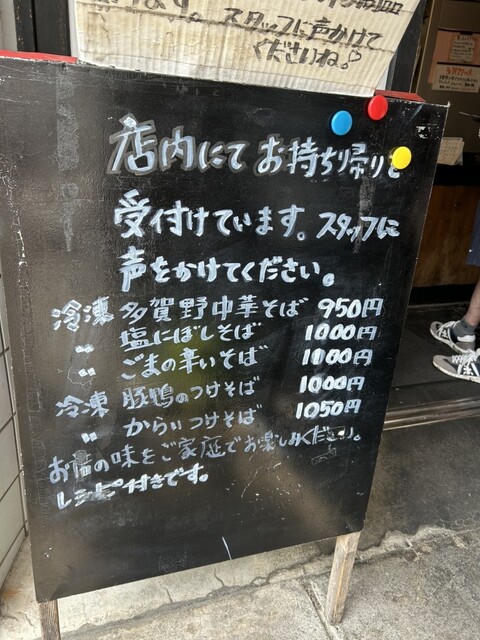 スタッフに声かけて
くださいね♡
店内にて お持ち帰りを
受付けています。スタッフに
声をかけてください。
冷凍 多賀野中華そば 950円
〃 塩にぼしそば 1000円
〃 ごまの辛いそば 1100円
冷凍 豚鴨のつけそば 1000円
〃 からいつけそば 1050円
お店の味をご家庭でお楽しみください。
レシピ付きです。